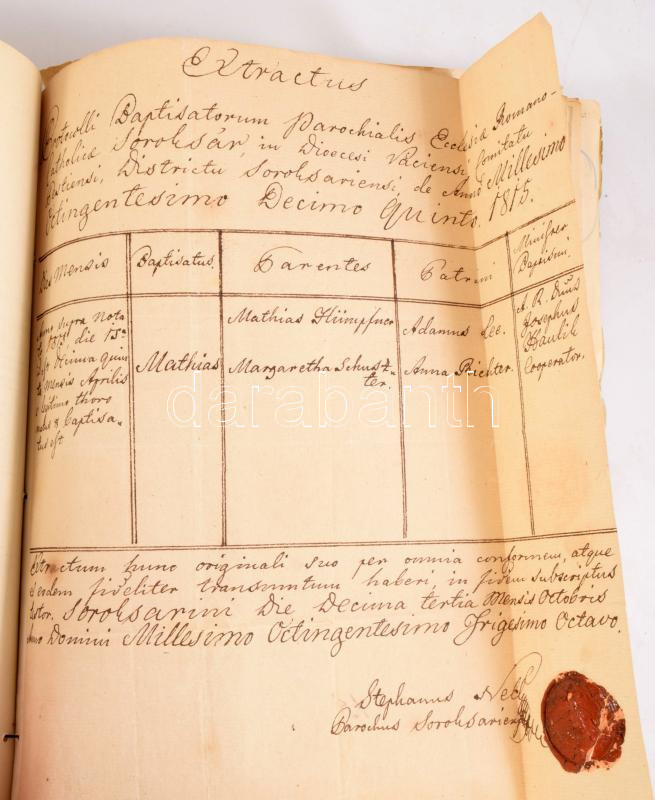 Extractus
Protocolli Baptisatorum Parochialis Ecclesiæ Romano-
Catholicæ Soroksár, in Diocesi Vaciensi, Comitatu
Pestiensi, Districtu Soroksariensi, de Anno Millesimo
Octingentesimo Decimo Quinto. 1815.
Dies Mensis
Baptisatus.
Parentes
Patrini
Minister Baptismi.
Anno supra Nota
1815 die 15a
Decima Quin
ta Mensis Aprilis
legitimo thoro
natus & baptisa-
tus est.
Mathias
Mathias Hümpfner
Margaretha Schust-
ter.
Adamus Lee.
Anna Richter.
A. R. Dnus
Josephus
Haulik
Cooperator.
darabanth
Extractum hunc originali suo per omnia conformem, atque
eodem fideliter transumtum haberi, in fidem subscriptus
testor. Soroksarini Die Decima tertia Mensis Octobris
Anno Domini Millesimo Octingentesimo Trigesimo Octavo.
Stephanus
Parochus Soroksariensis